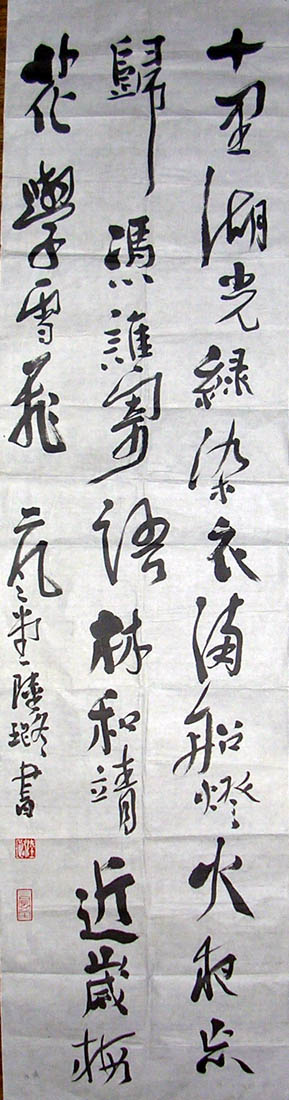 十里湖光綠染衣滿船燈火夜忘
歸憑誰寄語林和靖近歲梅
花學雪飛 二風堂 陸璐書